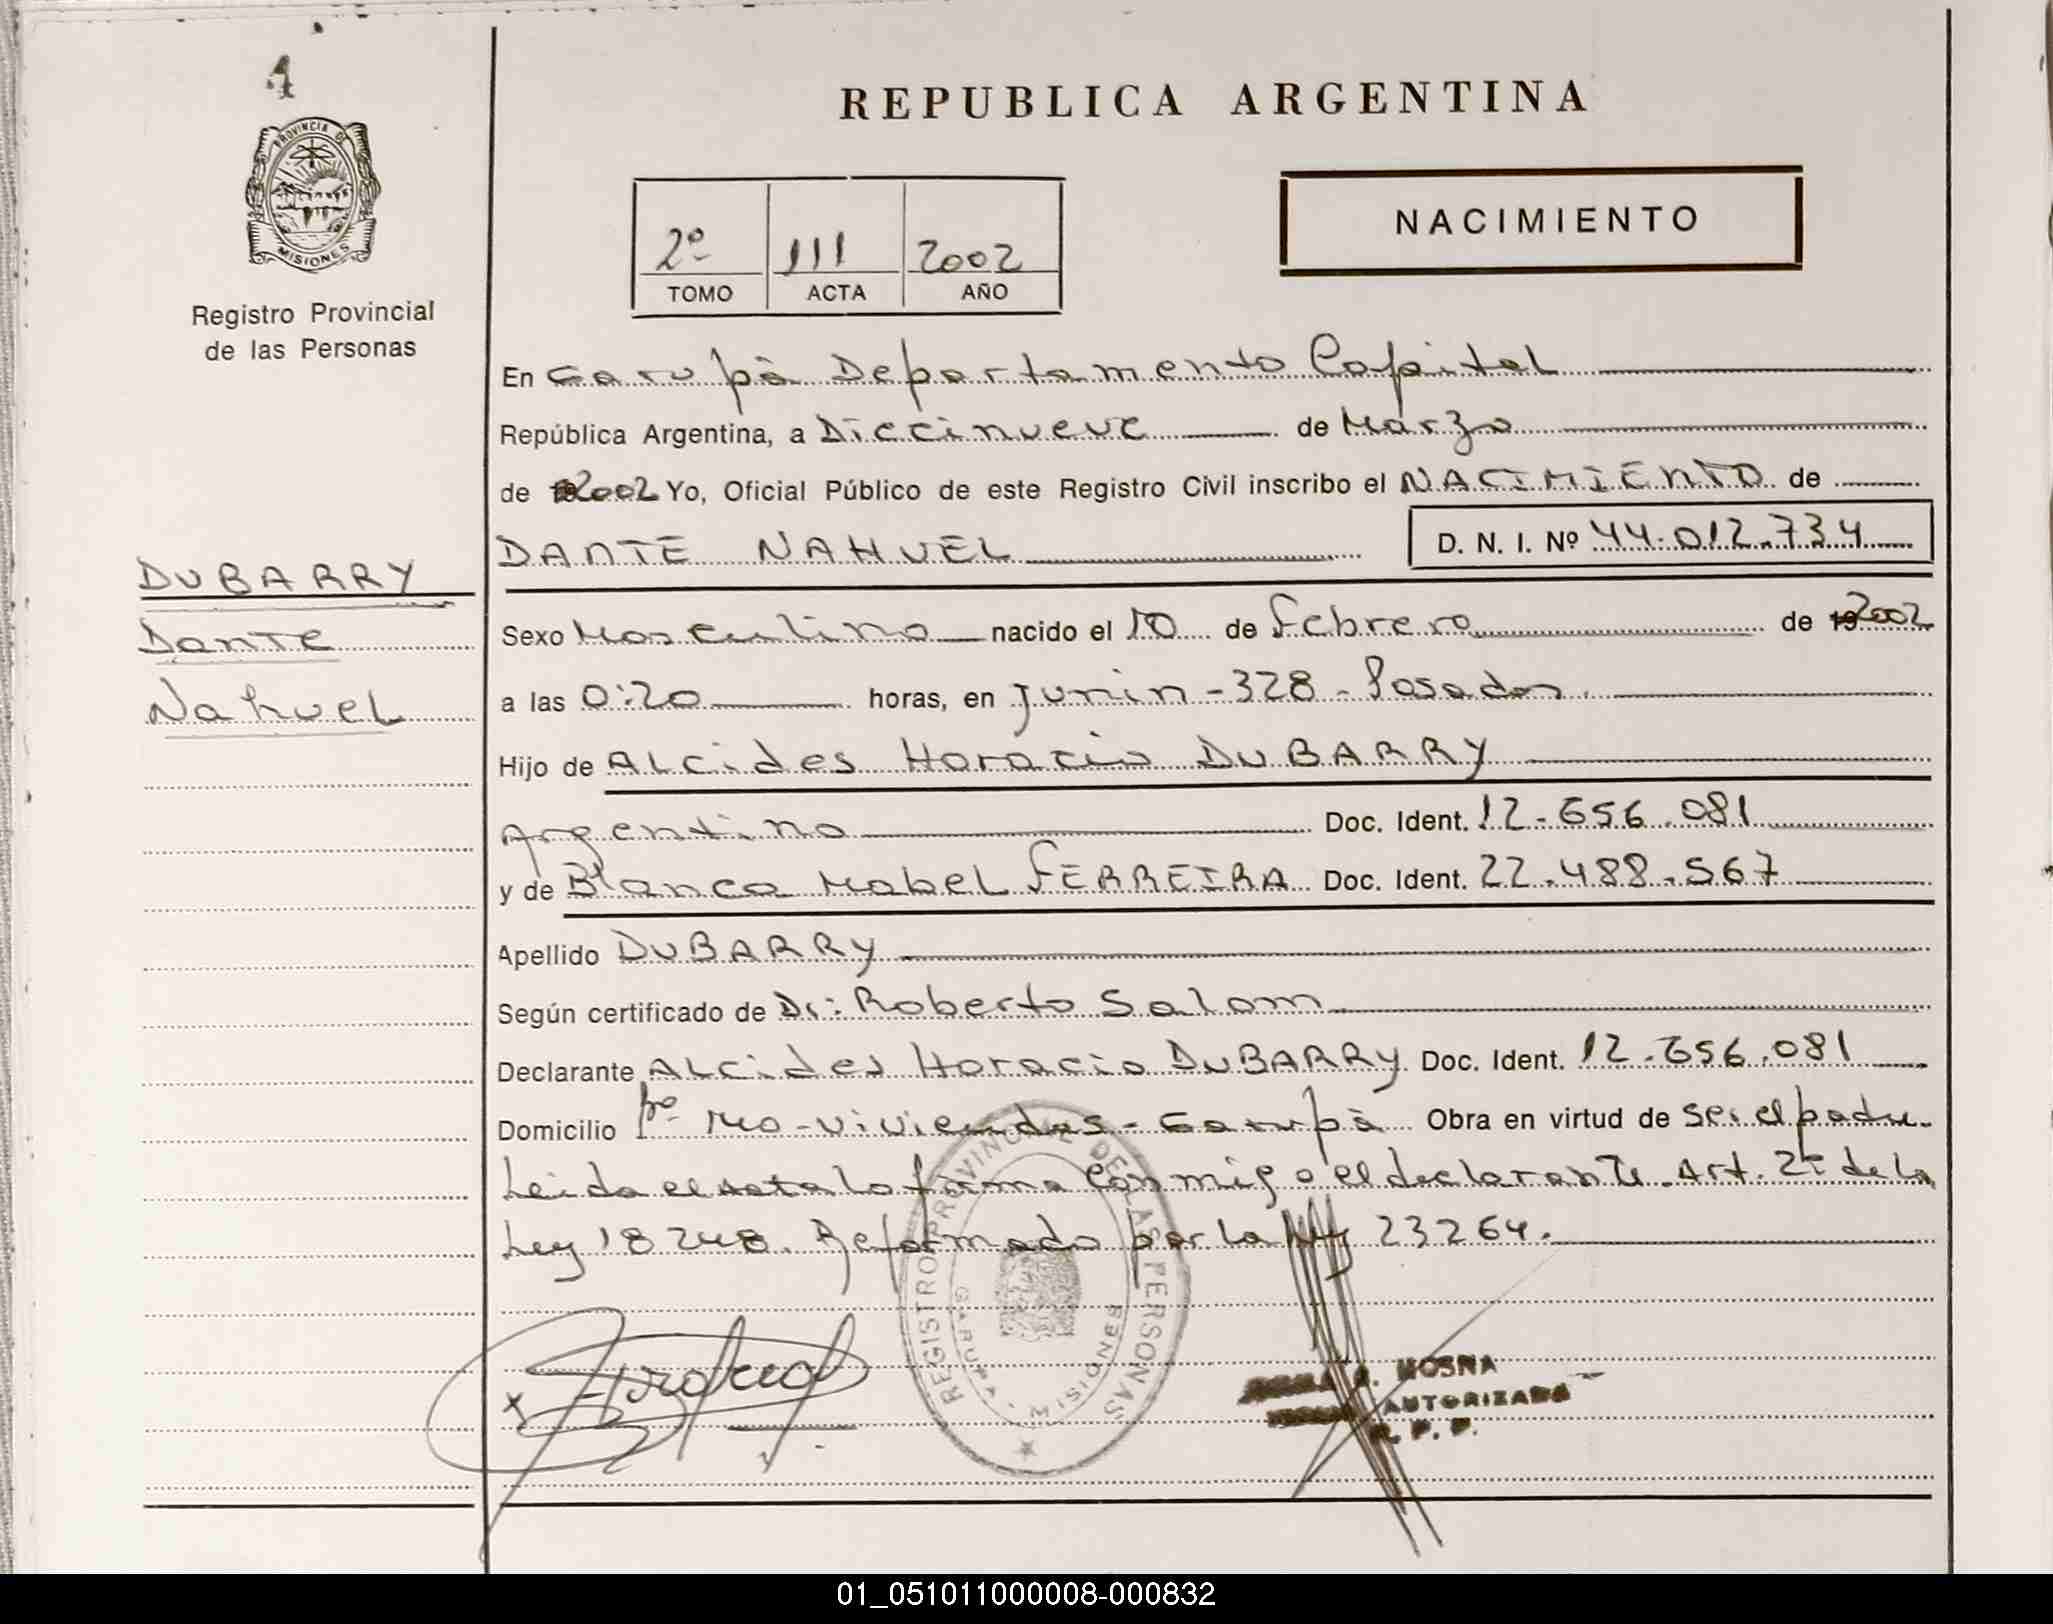 1
PROVINCIA DE
MISIONES
Registro Provincial
de las Personas
DUBARRY
Dante
Nahuel
REPUBLICA ARGENTINA
2º 111 2002
TOMO ACTA AÑO
NACIMIENTO
En Garupà Departamento Capital
República Argentina, a Diecinueve de Marzo
de 2002 Yo, Oficial Público de este Registro Civil inscribo el NACIMIENTO de
DANTE NAHUEL D. N. I. Nº 44.012.734
Sexo Masculino nacido el 10 de Febrero de 2002
a las 0:20 horas, en Junin-328-Posadas.
Hijo de ALcides Horacio DUBARRY
Argentino Doc. Ident. 12.656.081
y de Blanca Mabel FERREIRA Doc. Ident. 22.488.567
Apellido DUBARRY
Según certificado de Dr: Roberto Salom
Declarante ALcides Horacio DUBARRY Doc. Ident. 12.656.081
Domicilio viviendas-Garupà Obra en virtud de ser el padre.
Leida el acta la firma conmigo el declarante. Art. 2º de la
Ley 18248. Reformado por la Ley 23264.
REGISTRO PROVINCIAL DE LAS PERSONAS
GARUPA MISIONES
MOSNA
AUTORIZADO
R. P. P.
01_051011000008-000832